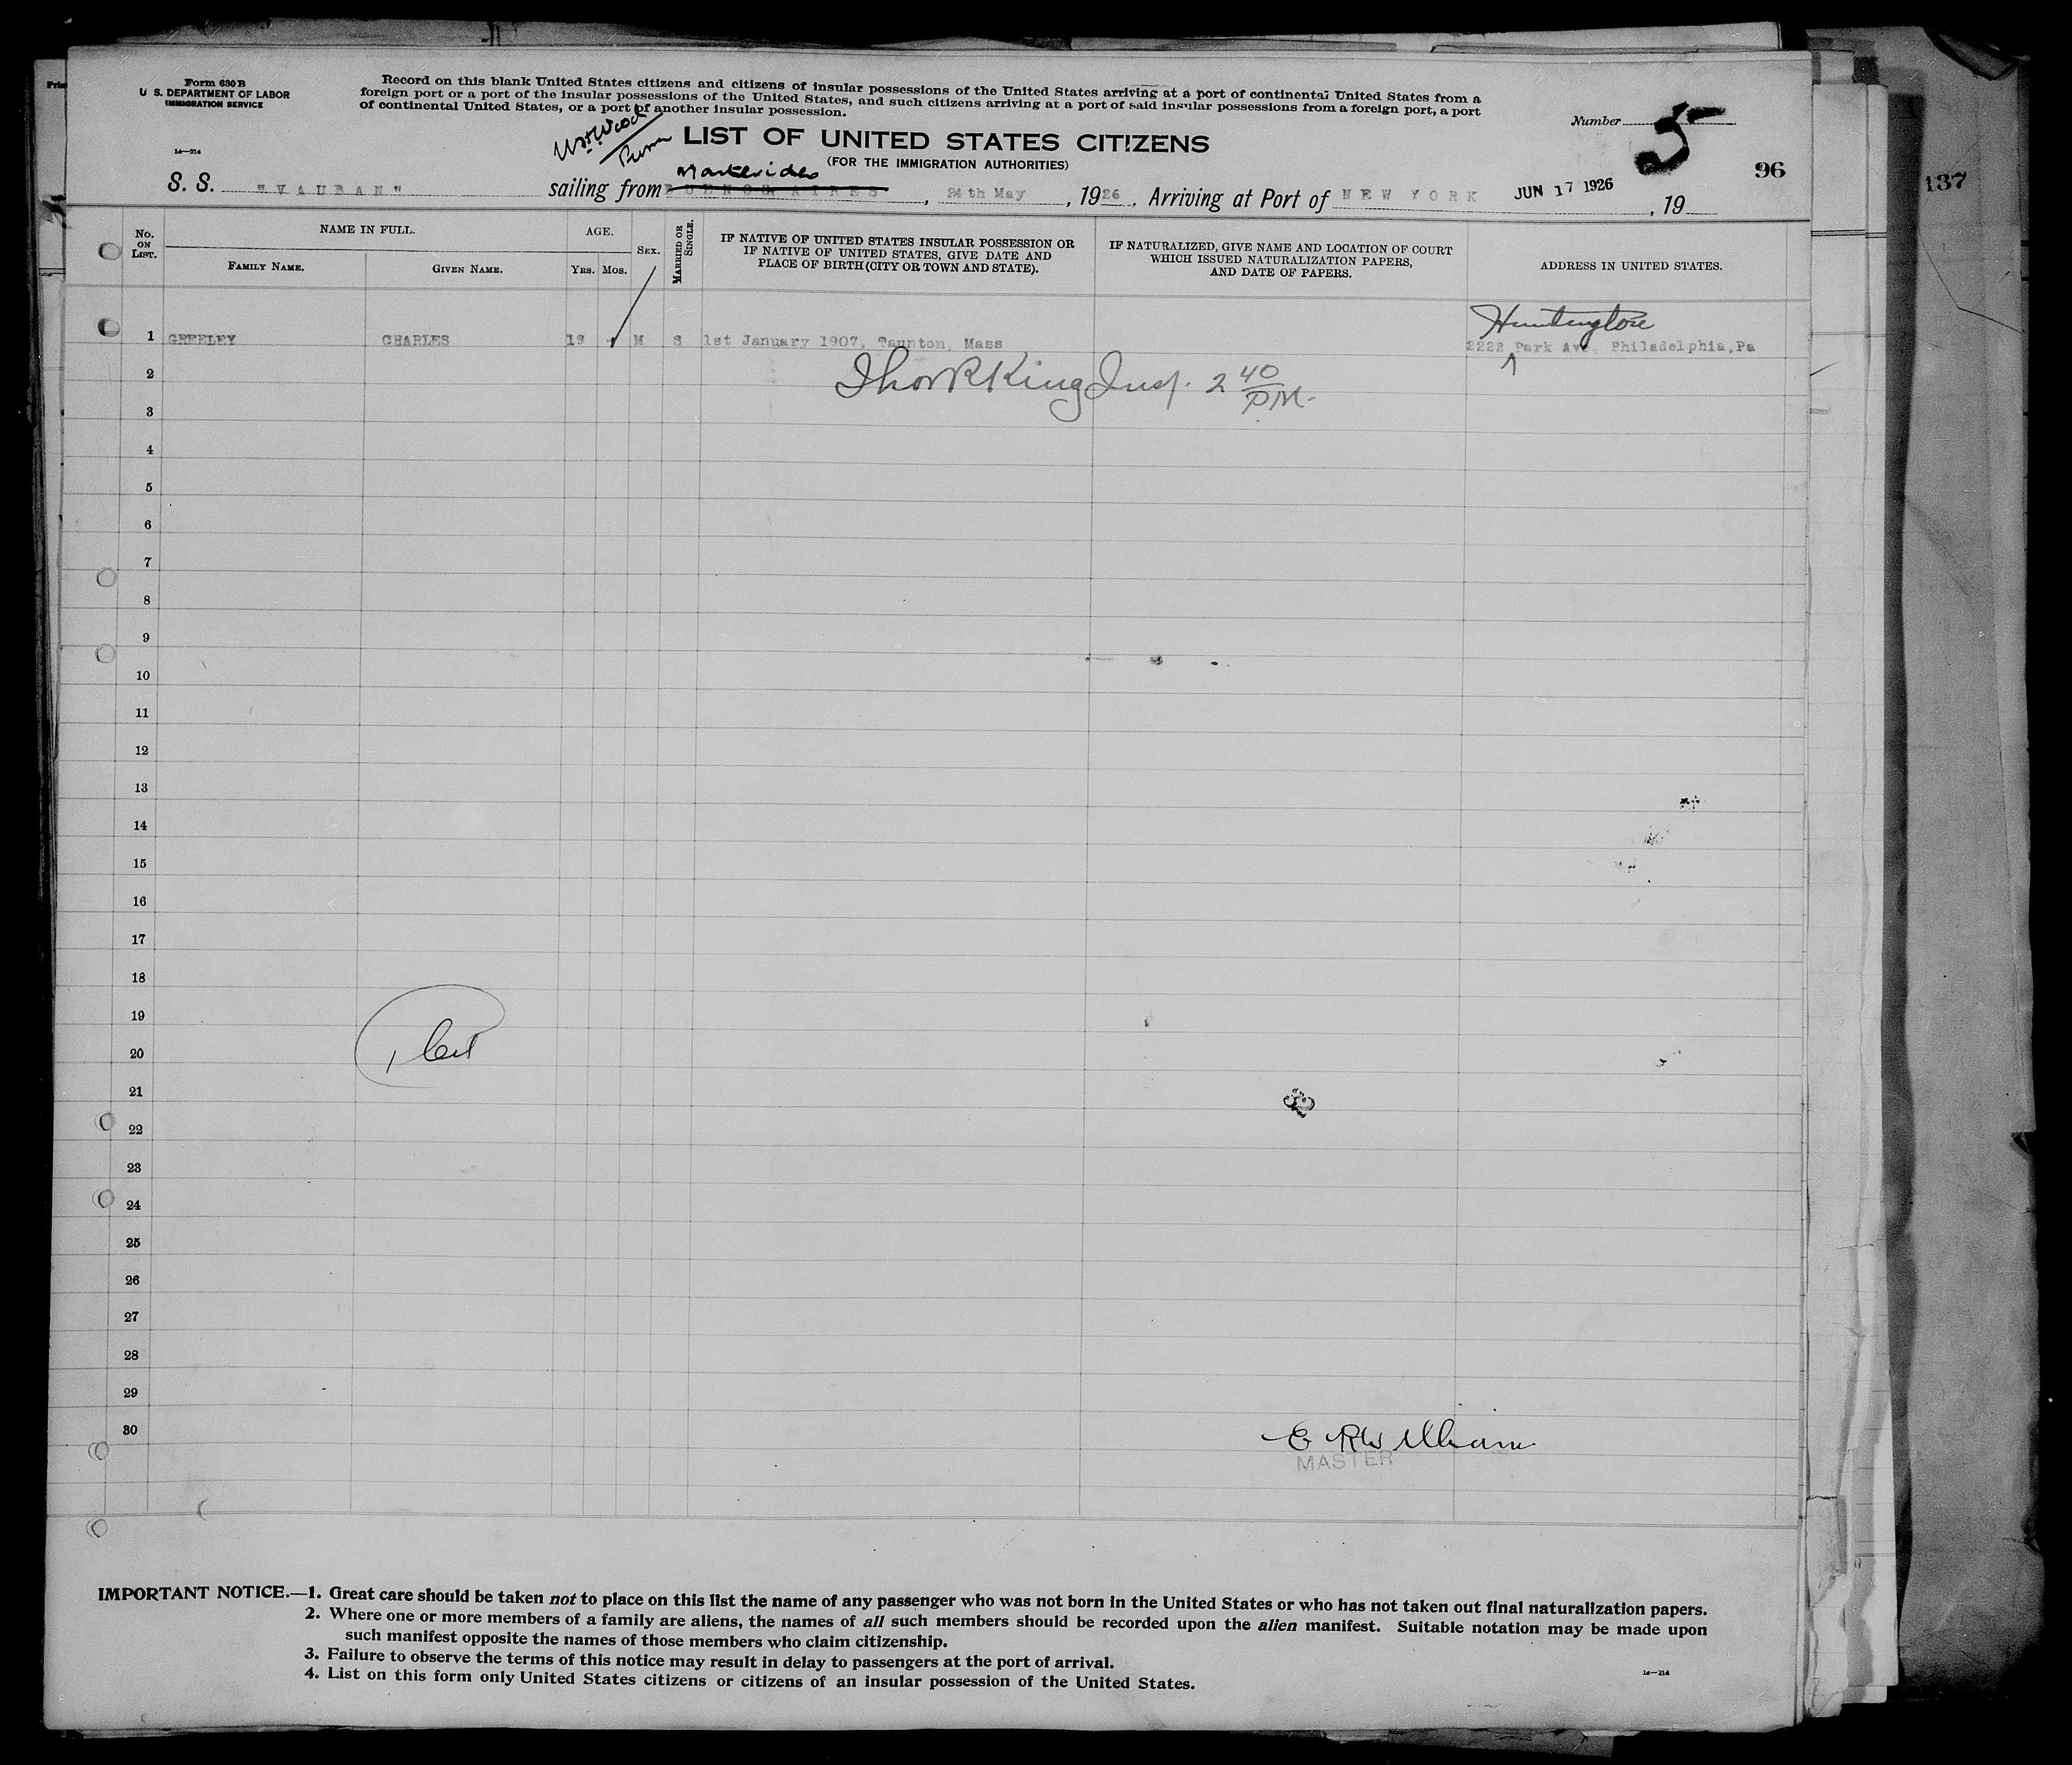 Form 630 B
U S. DEPARTMENT OF LABOR
IMMIGRATION SERVICE
14—214
Record on this blank United States citizens and citizens of insular possessions of the United States arriving at a port of continental United States from a
foreign port or a port of the insular possessions of the United States, and such citizens arriving at a port of said insular possessions from a foreign port, a port
of continental United States, or a port of another insular possession.
LIST OF UNITED STATES CITIZENS
(FOR THE IMMIGRATION AUTHORITIES)
Number 5
96
137
Montevideo
S. S. "VAUBAN" sailing from BUENOS AIRES, 24th May, 1926, Arriving at Port of NEW YORK JUN 17 1926, 19
No. ON LIST.
NAME IN FULL.
FAMILY NAME.
GIVEN NAME.
AGE.
YRS. MOS.
SEX.
MARRIED OR SINGLE.
IF NATIVE OF UNITED STATES INSULAR POSSESSION OR
IF NATIVE OF UNITED STATES, GIVE DATE AND
PLACE OF BIRTH (CITY OR TOWN AND STATE).
IF NATURALIZED, GIVE NAME AND LOCATION OF COURT
WHICH ISSUED NATURALIZATION PAPERS,
AND DATE OF PAPERS.
ADDRESS IN UNITED STATES.
Huntington
1 GREELEY CHARLES 19 M S 1st January 1907, Taunton, Mass 2222 Park Ave. Philadelphia, Pa
2 King Insp. 2 40 PM.
3
4
5
6
7
8
9
10
11
12
13
14
15
16
17
18
19
20
21
22
23
24
25
26
27
28
29
30
MASTER
IMPORTANT NOTICE.—1. Great care should be taken not to place on this list the name of any passenger who was not born in the United States or who has not taken out final naturalization papers.
2. Where one or more members of a family are aliens, the names of all such members should be recorded upon the alien manifest. Suitable notation may be made upon
such manifest opposite the names of those members who claim citizenship.
3. Failure to observe the terms of this notice may result in delay to passengers at the port of arrival.
4. List on this form only United States citizens or citizens of an insular possession of the United States.
14—214